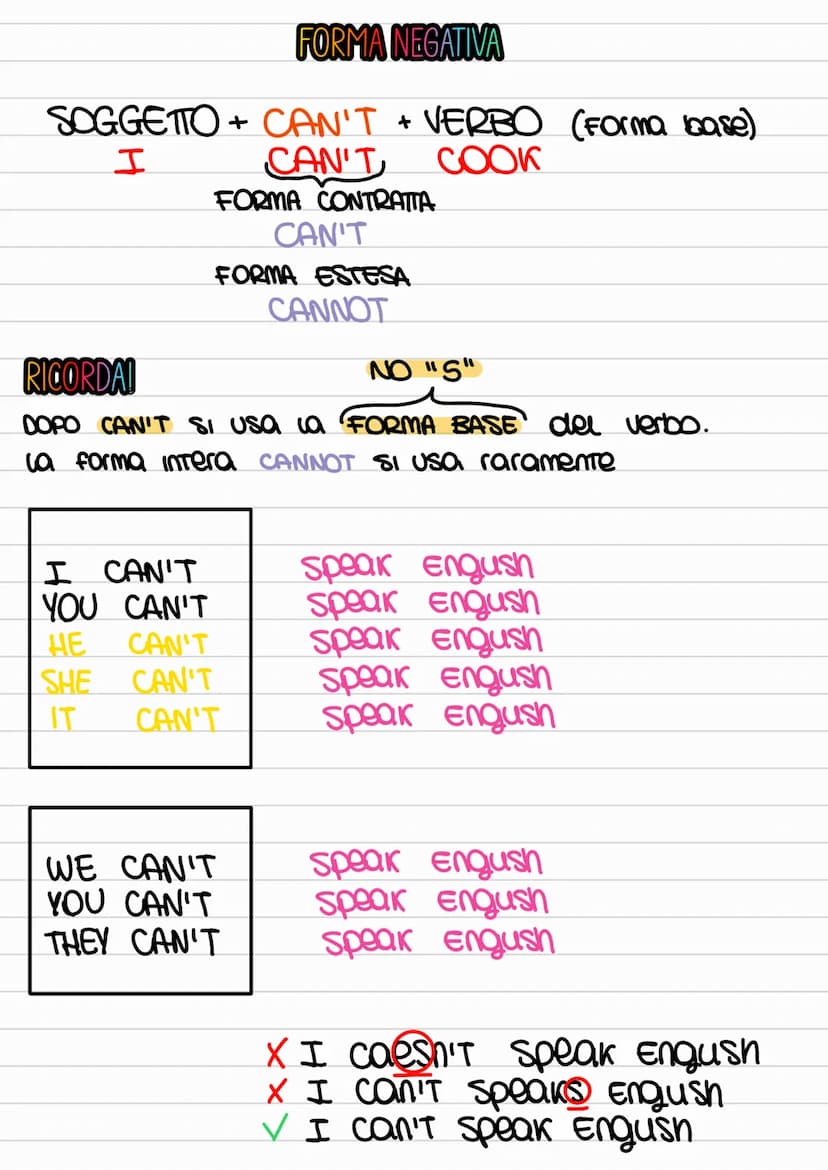 FORMA NEGATIVA
SOGGETTO + CAN'T + VERBO (Forma base)
I CAN'T COOK
FORMA CONTRATTA
CAN'T
FORMA ESTESA
CANNOT
RICORDA!
NO "S"
DOPO CAN'T SI USA LA FORMA BASE del verbo.
La forma intera CANNOT SI USA raramente
I CAN'T speak English
YOU CAN'T speak English
HE CAN'T speak English
SHE CAN'T speak English
IT CAN'T speak English
WE CAN'T speak English
YOU CAN'T speak English
THEY CAN'T speak English
X I caesn't speak English
X I can't speaks English
✓ I can't speak English